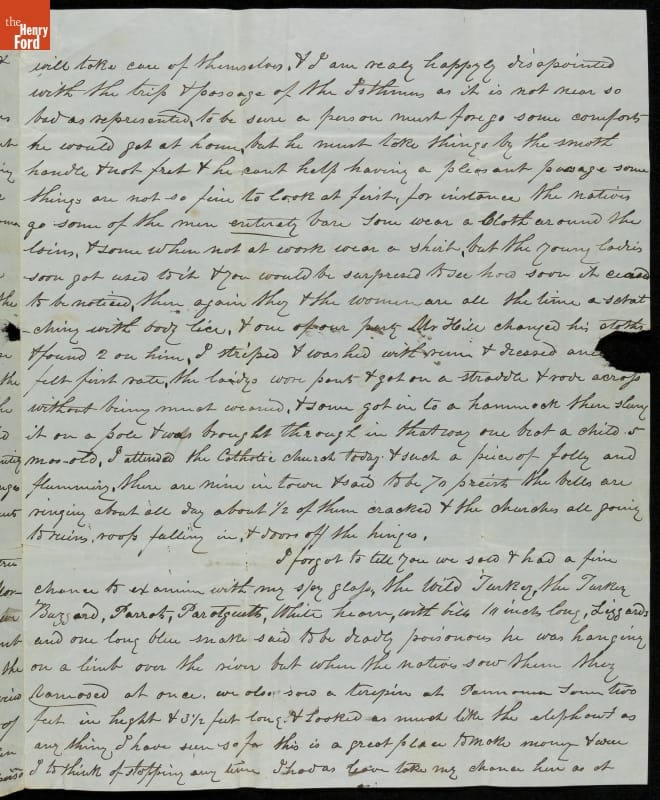 the
Henry
Ford
will take care of themselves. & I am realy happyly disapointed
with the trip & passage of the Isthmus as it is not near so
bad as represented, to be sure a person must forego some comforts
he would get at home, but he must take things by the smoth
handle & not fret & he cant help having a pleasant passage some
things are not so fine to look at first, for instance the natives
go some of the men entirely bare some wear a Cloth around the
loins, & some when not at work wear a shirt, but the young ladies
soon got used to it & you would be surprised to see how soon it ceased
to be noticed, then again they & the women are all the time a scrat
ching with body lice, & one of our party Mr Hill changed his cloths
& found 2 on him, I striped & washed with rum & dressed and
felt first rate, the laidys wore pants & got on a straddle & rode across
without being much wearied, & some got in to a hammock then slung
it on a pole & was brought through in that way one but a child 5
mos. old, I attended the Catholic church today & such a piece of folly and
flummery, there are nine in town & said to be 70 preists the bells are
ringing about all day about 1/2 of them cracked & the churches all going
to ruins, roofs falling in, & doors off the hinges.
I forgot to tell you we saw & had a fine
chance to examin with my spy glass, the Wild Turkey, the Turkey
Buzzard, Parrot, Parotquets, White hearn, with bills 10 inch long, Lizzards
and one long blue snake said to be deadly poisonous he was hanging
on a limb over the river but when the natives saw them they
vamosed at once. we also saw a terepin at Pannoma some two
feet in hight & 3 1/2 feet long & looked as much like the elephant as
any thing I have seen so far this is a great place to make money & were
I to think of stopping any time I had as leave take my chance hear as at